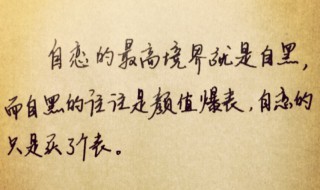 自恋的最高境界就是自黑，
而自黑的往往是颜值爆表，自恋的
只是买了个表。